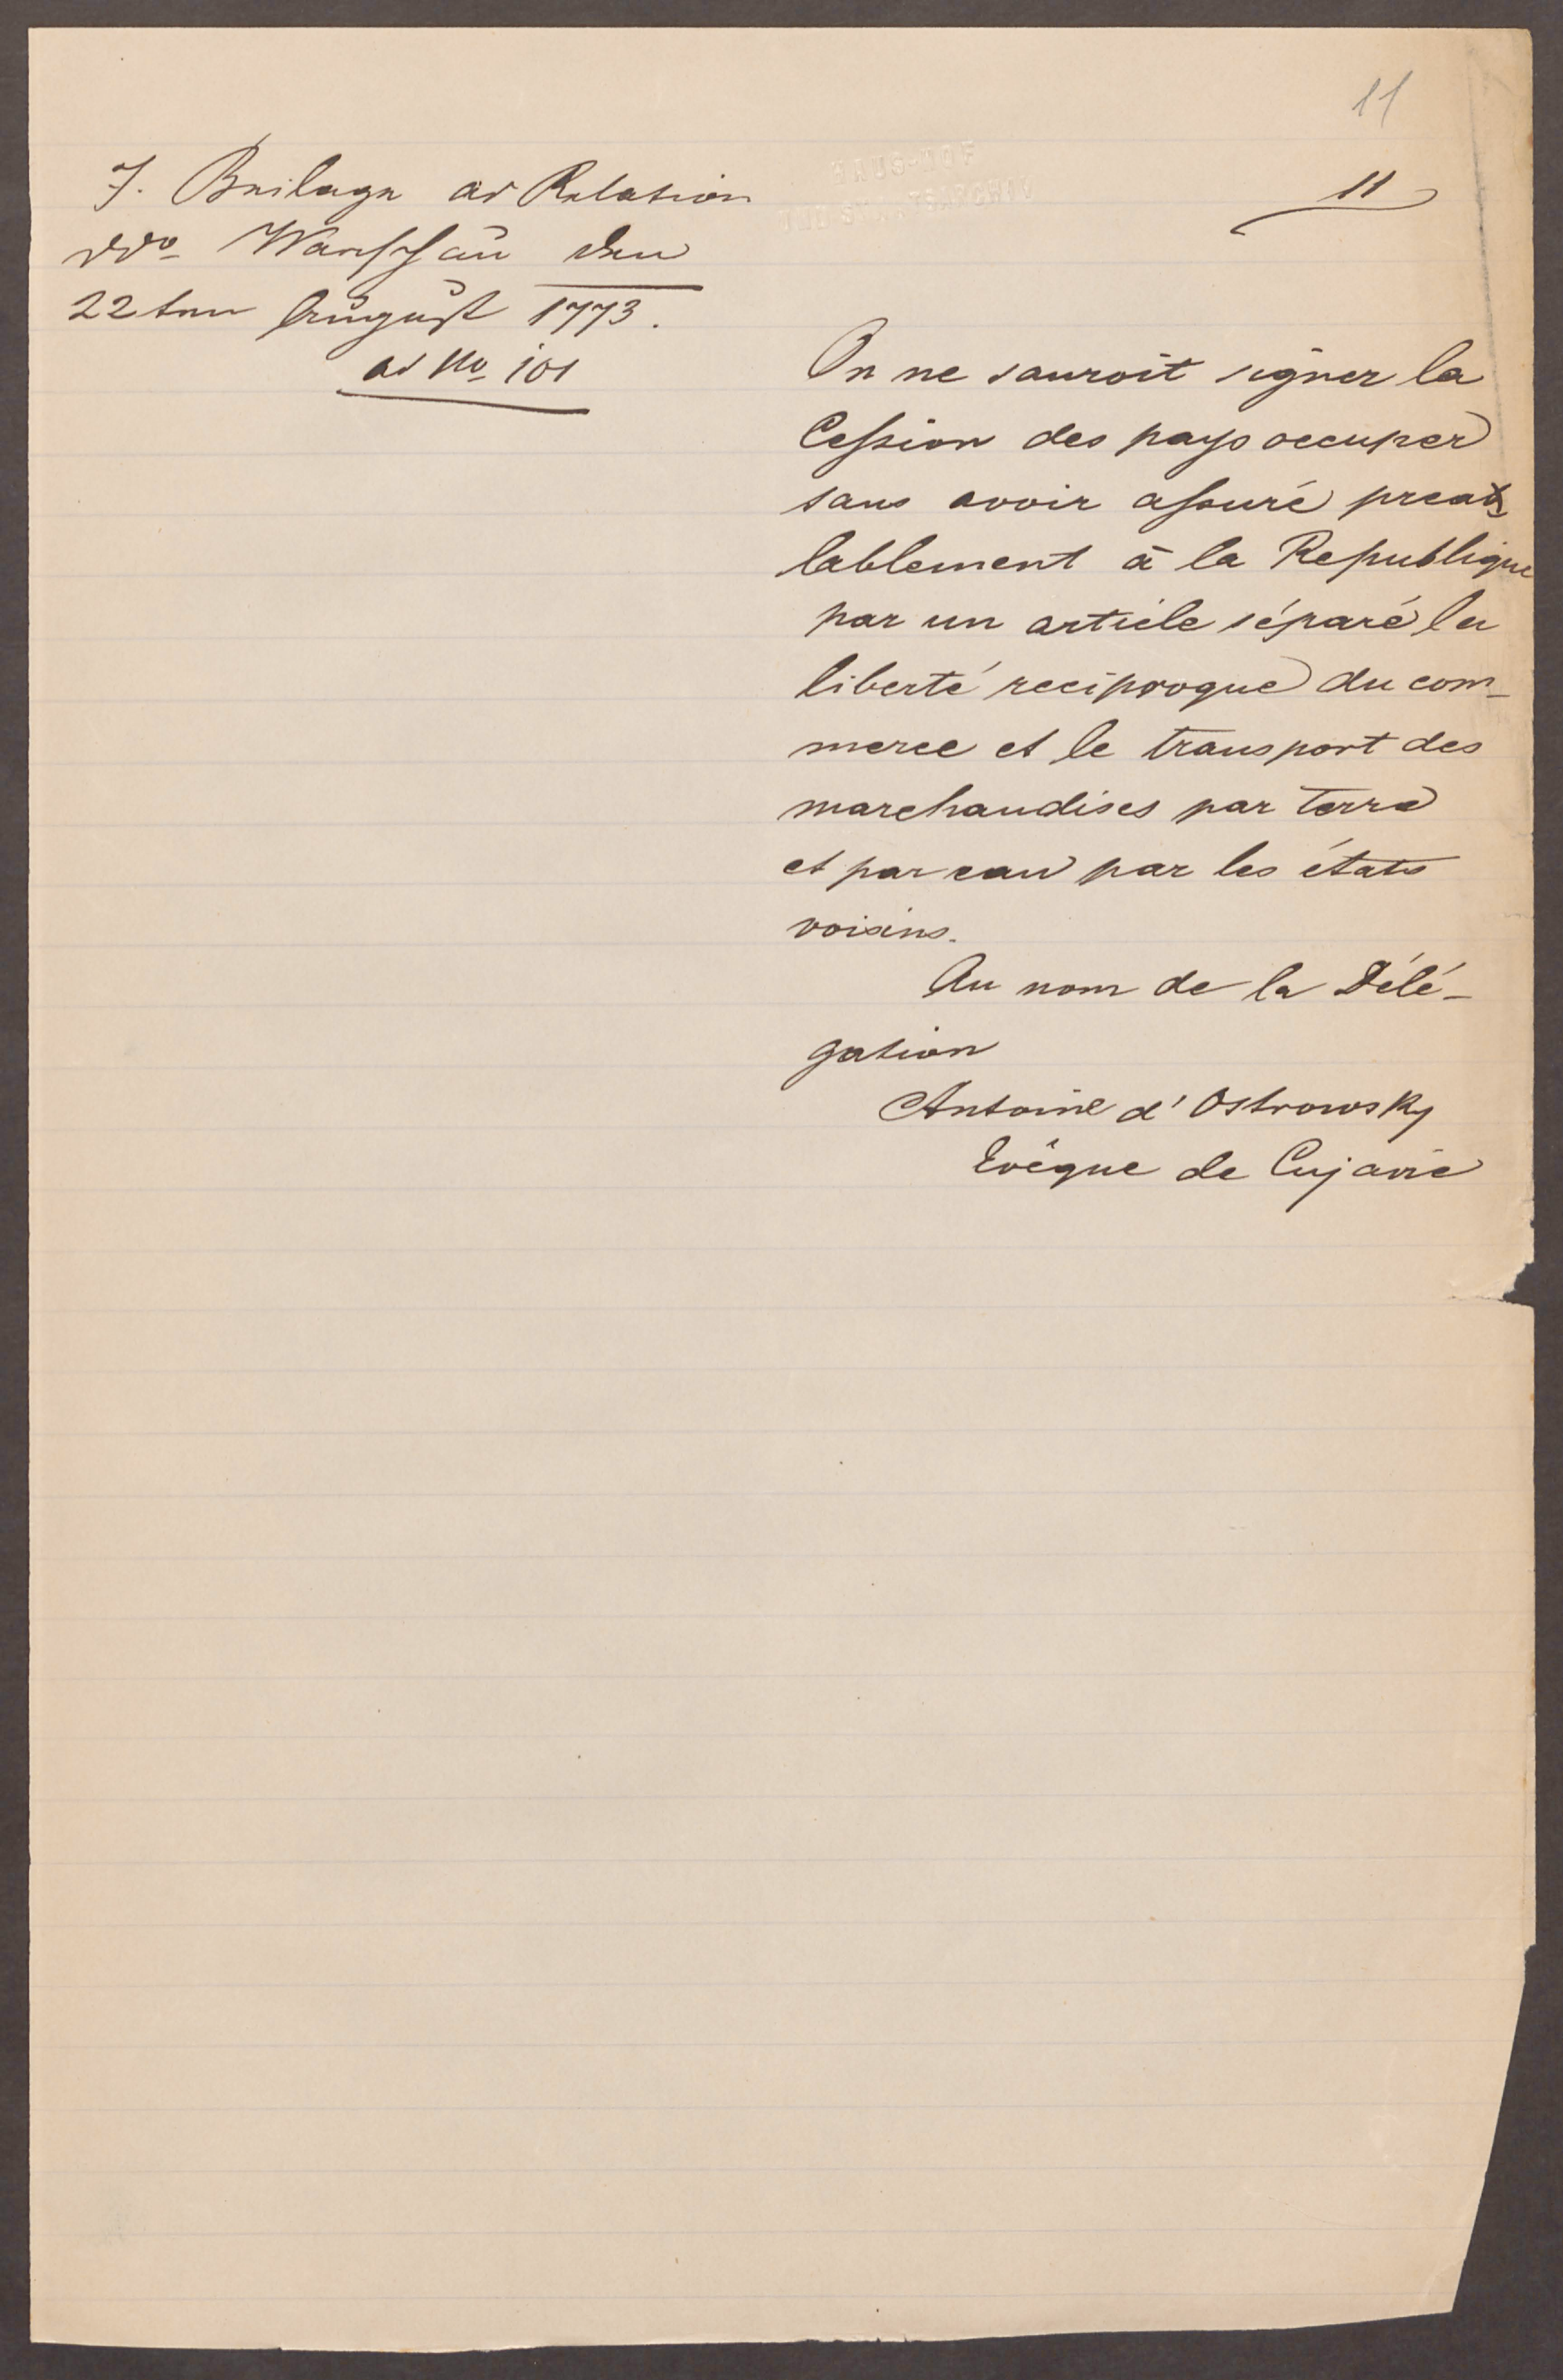 11
11
7. Beilage ad Relation
ddo Warschau den
22ten August 1773.
ad No 101
On ne sauroit signer la
Cession des pays occuper
sans avoir assuré prea
lablement à la Republique
par un article séparé la
liberté reciproque du com-
merce et le transport des
marchandises par terre
et par eau par les états
voisins.
Au nom de la Délé-
gation
Antoine d'Ostrowsky
Evêque de Cujavie